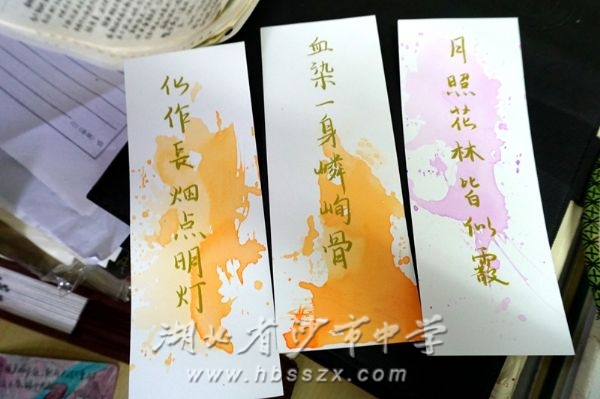 化作长烟点明灯
血染一身嶙峋骨
月照花林皆似霰
湖北省沙市中学
www.hbsszx.com